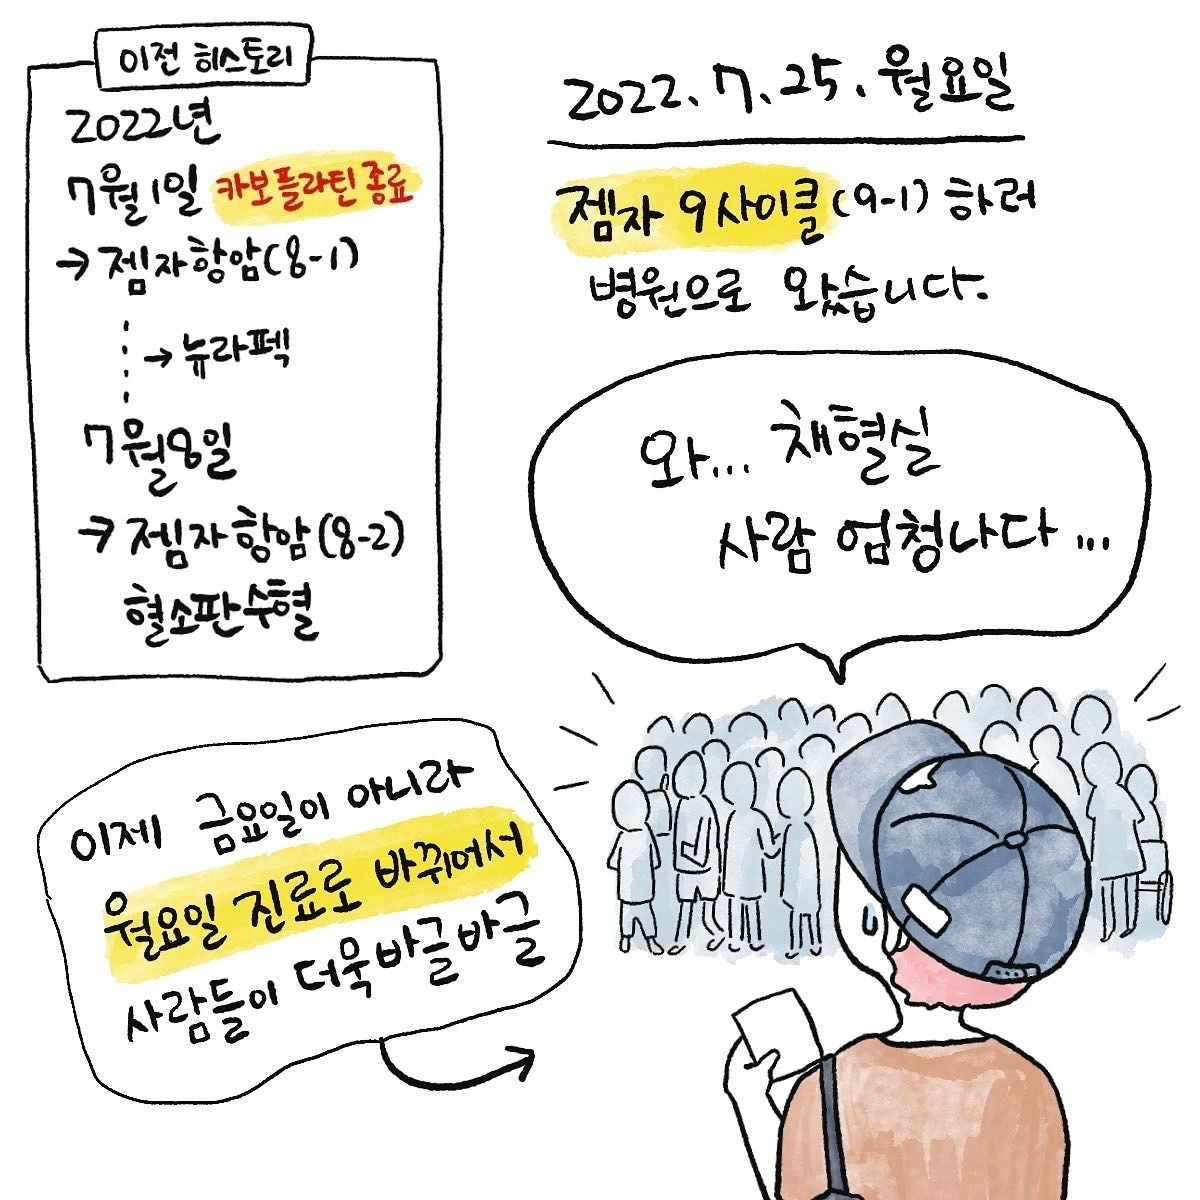 이전 히스토리
2022년
7월1일 카보플라틴 종료
→ 젬자항암(8-1)
→ 뉴라펙
7월8일
→ 젬자항암(8-2)
혈소판수혈
2022. 7. 25. 월요일
젬자 9사이클(9-1) 하러
병원으로 왔습니다.
와... 채혈실
사람 엄청나다...
이제 금요일이 아니라
월요일 진료로 바뀌어서
사람들이 더욱바글바글